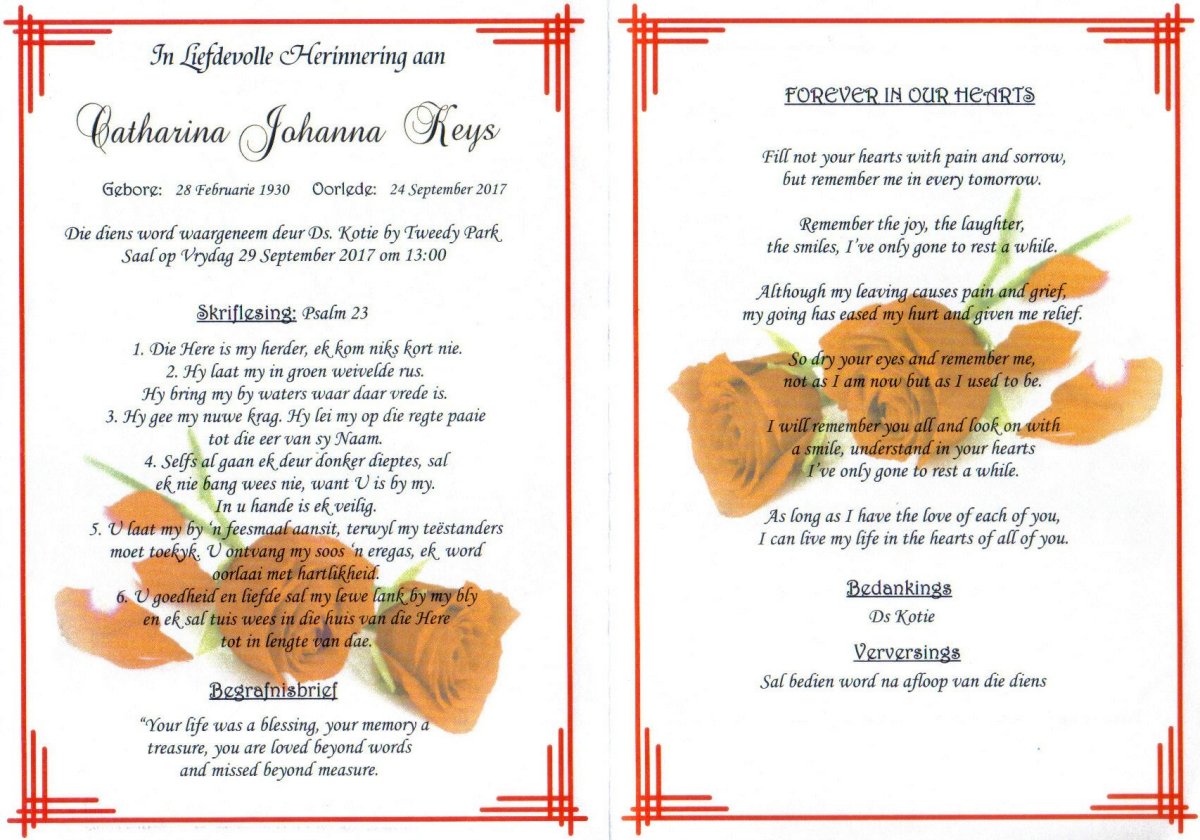 In Liefdevolle Herinnering aan
Catharina Johanna Keys
Gebore: 28 Februarie 1930 Oorlede: 24 September 2017
Die diens word waargeneem deur Ds. Kotie by Tweedy Park
Saal op Vrydag 29 September 2017 om 13:00
Skriflesing: Psalm 23
1. Die Here is my herder, ek kom niks kort nie.
2. Hy laat my in groen weivelde rus.
Hy bring my by waters waar daar vrede is.
3. Hy gee my nuwe krag. Hy lei my op die regte paaie
tot die eer van sy Naam.
4. Selfs al gaan ek deur donker dieptes, sal
ek nie bang wees nie, want U is by my.
In u hande is ek veilig.
5. U laat my by 'n feesmaal aansit, terwyl my teëstanders
moet toekyk. U ontvang my soos 'n eregas, ek word
oorlaai met hartlikheid.
6. U goedheid en liefde sal my lewe lank by my bly
en ek sal tuis wees in die huis van die Here
tot in lengte van dae.
Begrafnisbrief
“Your life was a blessing, your memory a
treasure, you are loved beyond words
and missed beyond measure.
FOREVER IN OUR HEARTS
Fill not your hearts with pain and sorrow,
but remember me in every tomorrow.
Remember the joy, the laughter,
the smiles, I've only gone to rest a while.
Although my leaving causes pain and grief,
my going has eased my hurt and given me relief.
So dry your eyes and remember me,
not as I am now but as I used to be.
I will remember you all and look on with
a smile, understand in your hearts
I've only gone to rest a while.
As long as I have the love of each of you,
I can live my life in the hearts of all of you.
Bedankings
Ds Kotie
Verversings
Sal bedien word na afloop van die diens